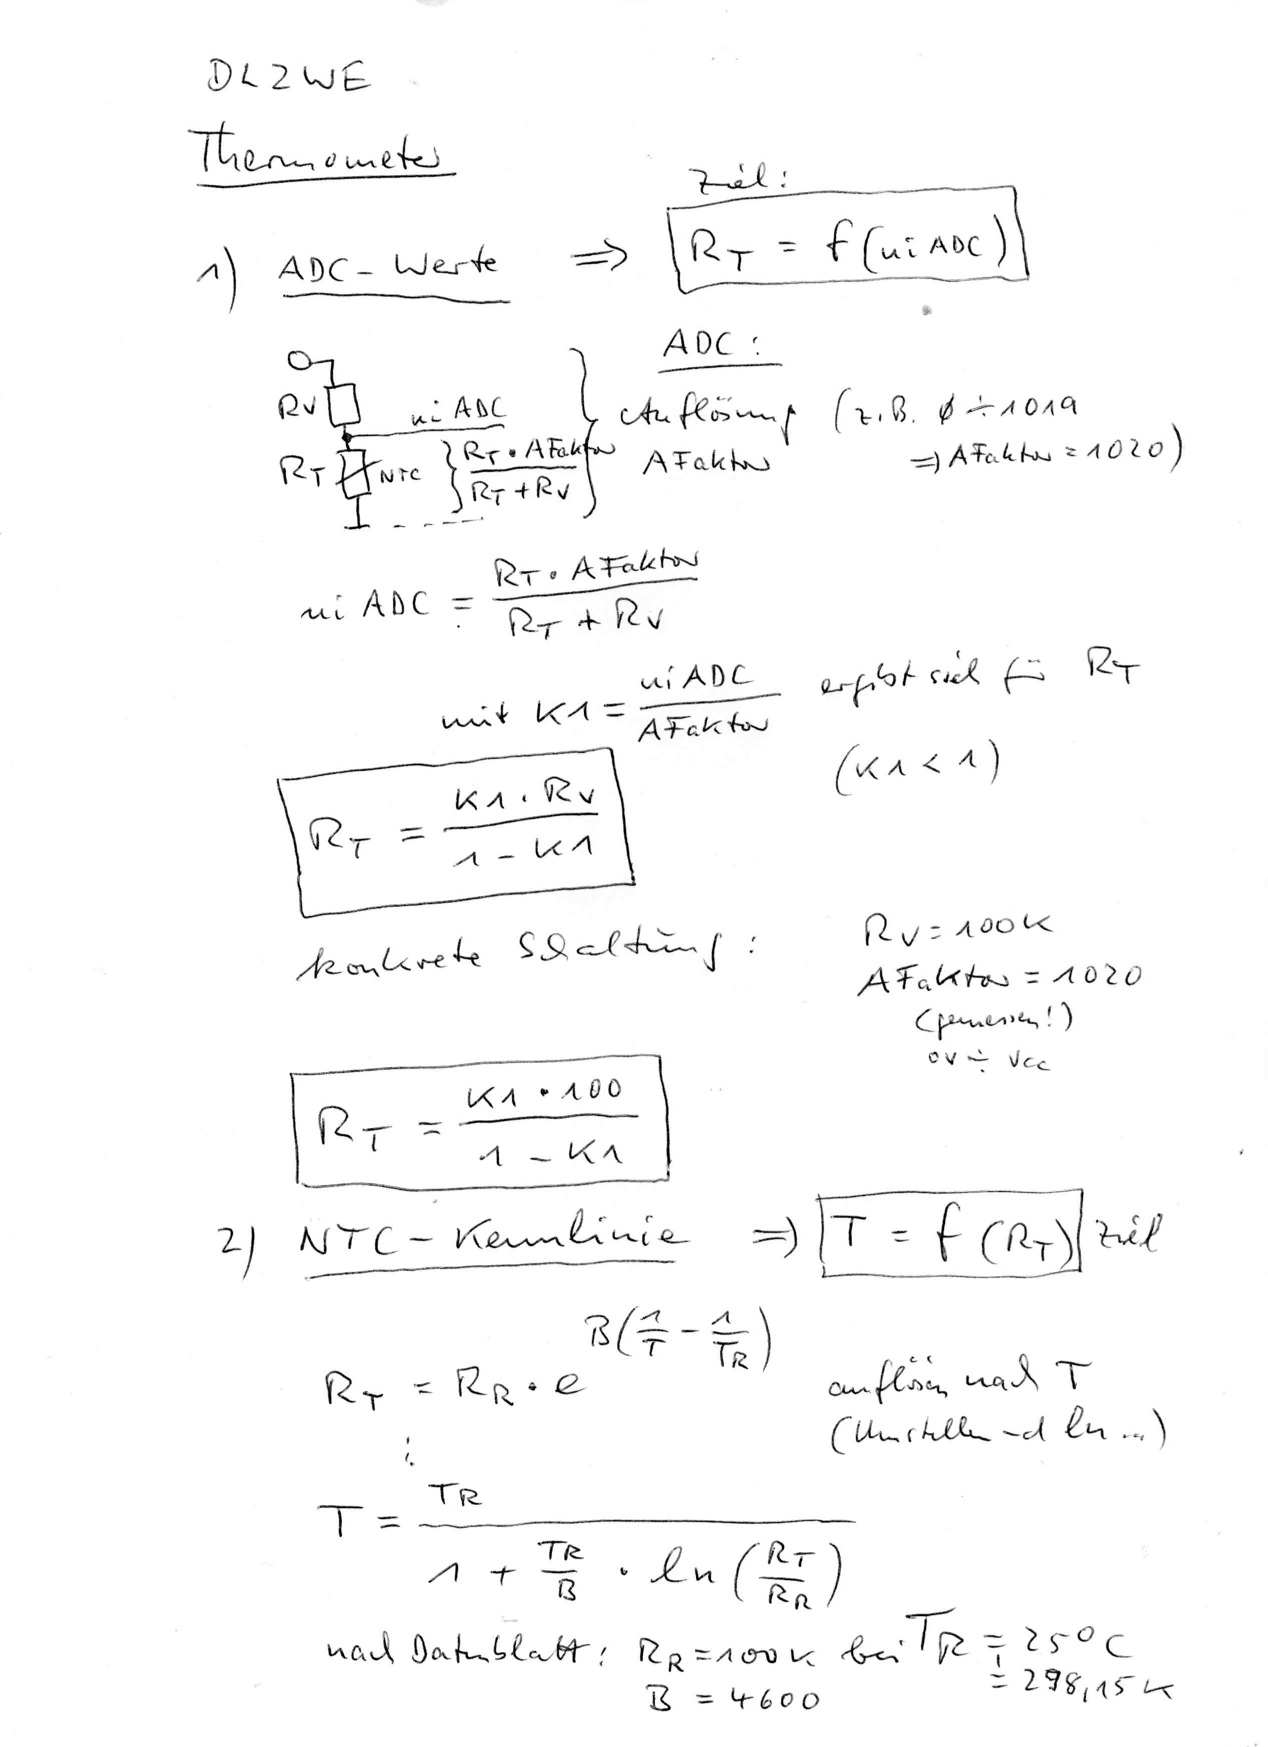 DL2WE
Thermometer
Ziel:
1) ADC-Werte => RT = f(uiADC)
ADC:
RV uiADC Auflösung (z.B. 0÷1019
RT NTC RT·AFaktor / RT+RV AFaktor => AFaktor = 1020)
uiADC = RT·AFaktor / RT + RV
mit K1 = uiADC / AFaktor ergibt sich für RT
(K1 < 1)
RT = K1·RV / 1-K1
konkrete Schaltung: RV = 100K
AFaktor = 1020
(gemessen!)
0V ÷ Vcc
RT = K1·100 / 1-K1
2) NTC-Kennlinie => T = f(RT) Ziel
RT = RR·e^B(1/T - 1/TR) auflösen nach T
(Umstellen und ln...)
⋮
T = TR / 1 + TR/B · ln(RT/RR)
nach Datenblatt: RR = 100K bei TR = 25°C
B = 4600 = 298,15K